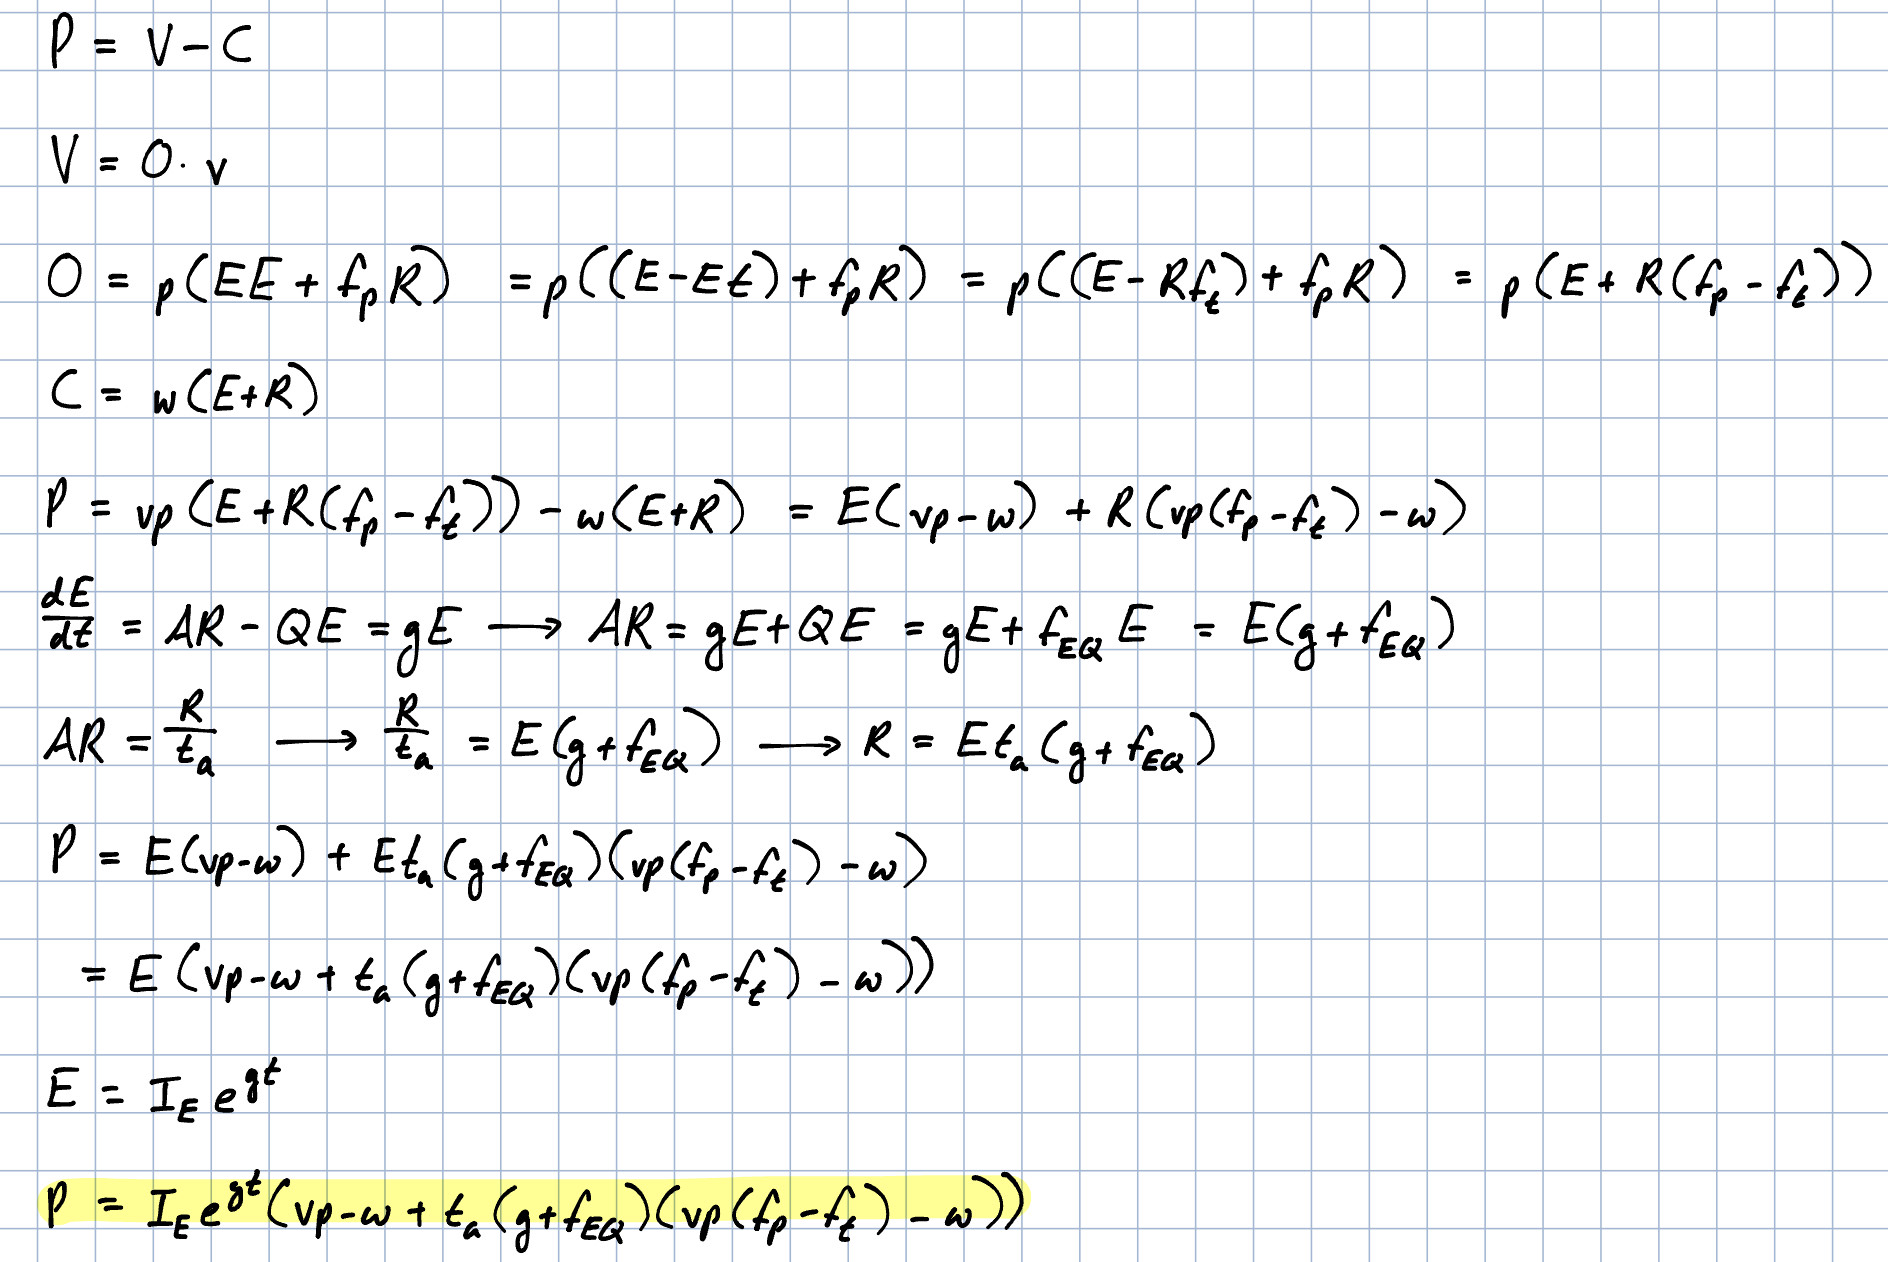 P = V - C
V = O · v
O = p(EE + f_p R) = p((E - Et) + f_p R) = p((E - Rf_t) + f_p R) = p(E + R(f_p - f_t))
C = w(E+R)
P = vp(E + R(f_p - f_t)) - w(E+R) = E(vp - w) + R(vp(f_p - f_t) - w)
dE/dt = AR - QE = gE ⟶ AR = gE + QE = gE + f_EQ E = E(g + f_EQ)
AR = R/t_a ⟶ R/t_a = E(g + f_EQ) ⟶ R = Et_a(g + f_EQ)
P = E(vp-w) + Et_a(g + f_EQ)(vp(f_p - f_t) - w)
= E(vp - w + t_a(g + f_EQ)(vp(f_p - f_t) - w))
E = I_E e^gt
P = I_E e^gt(vp - w + t_a(g + f_EQ)(vp(f_p - f_t) - w))